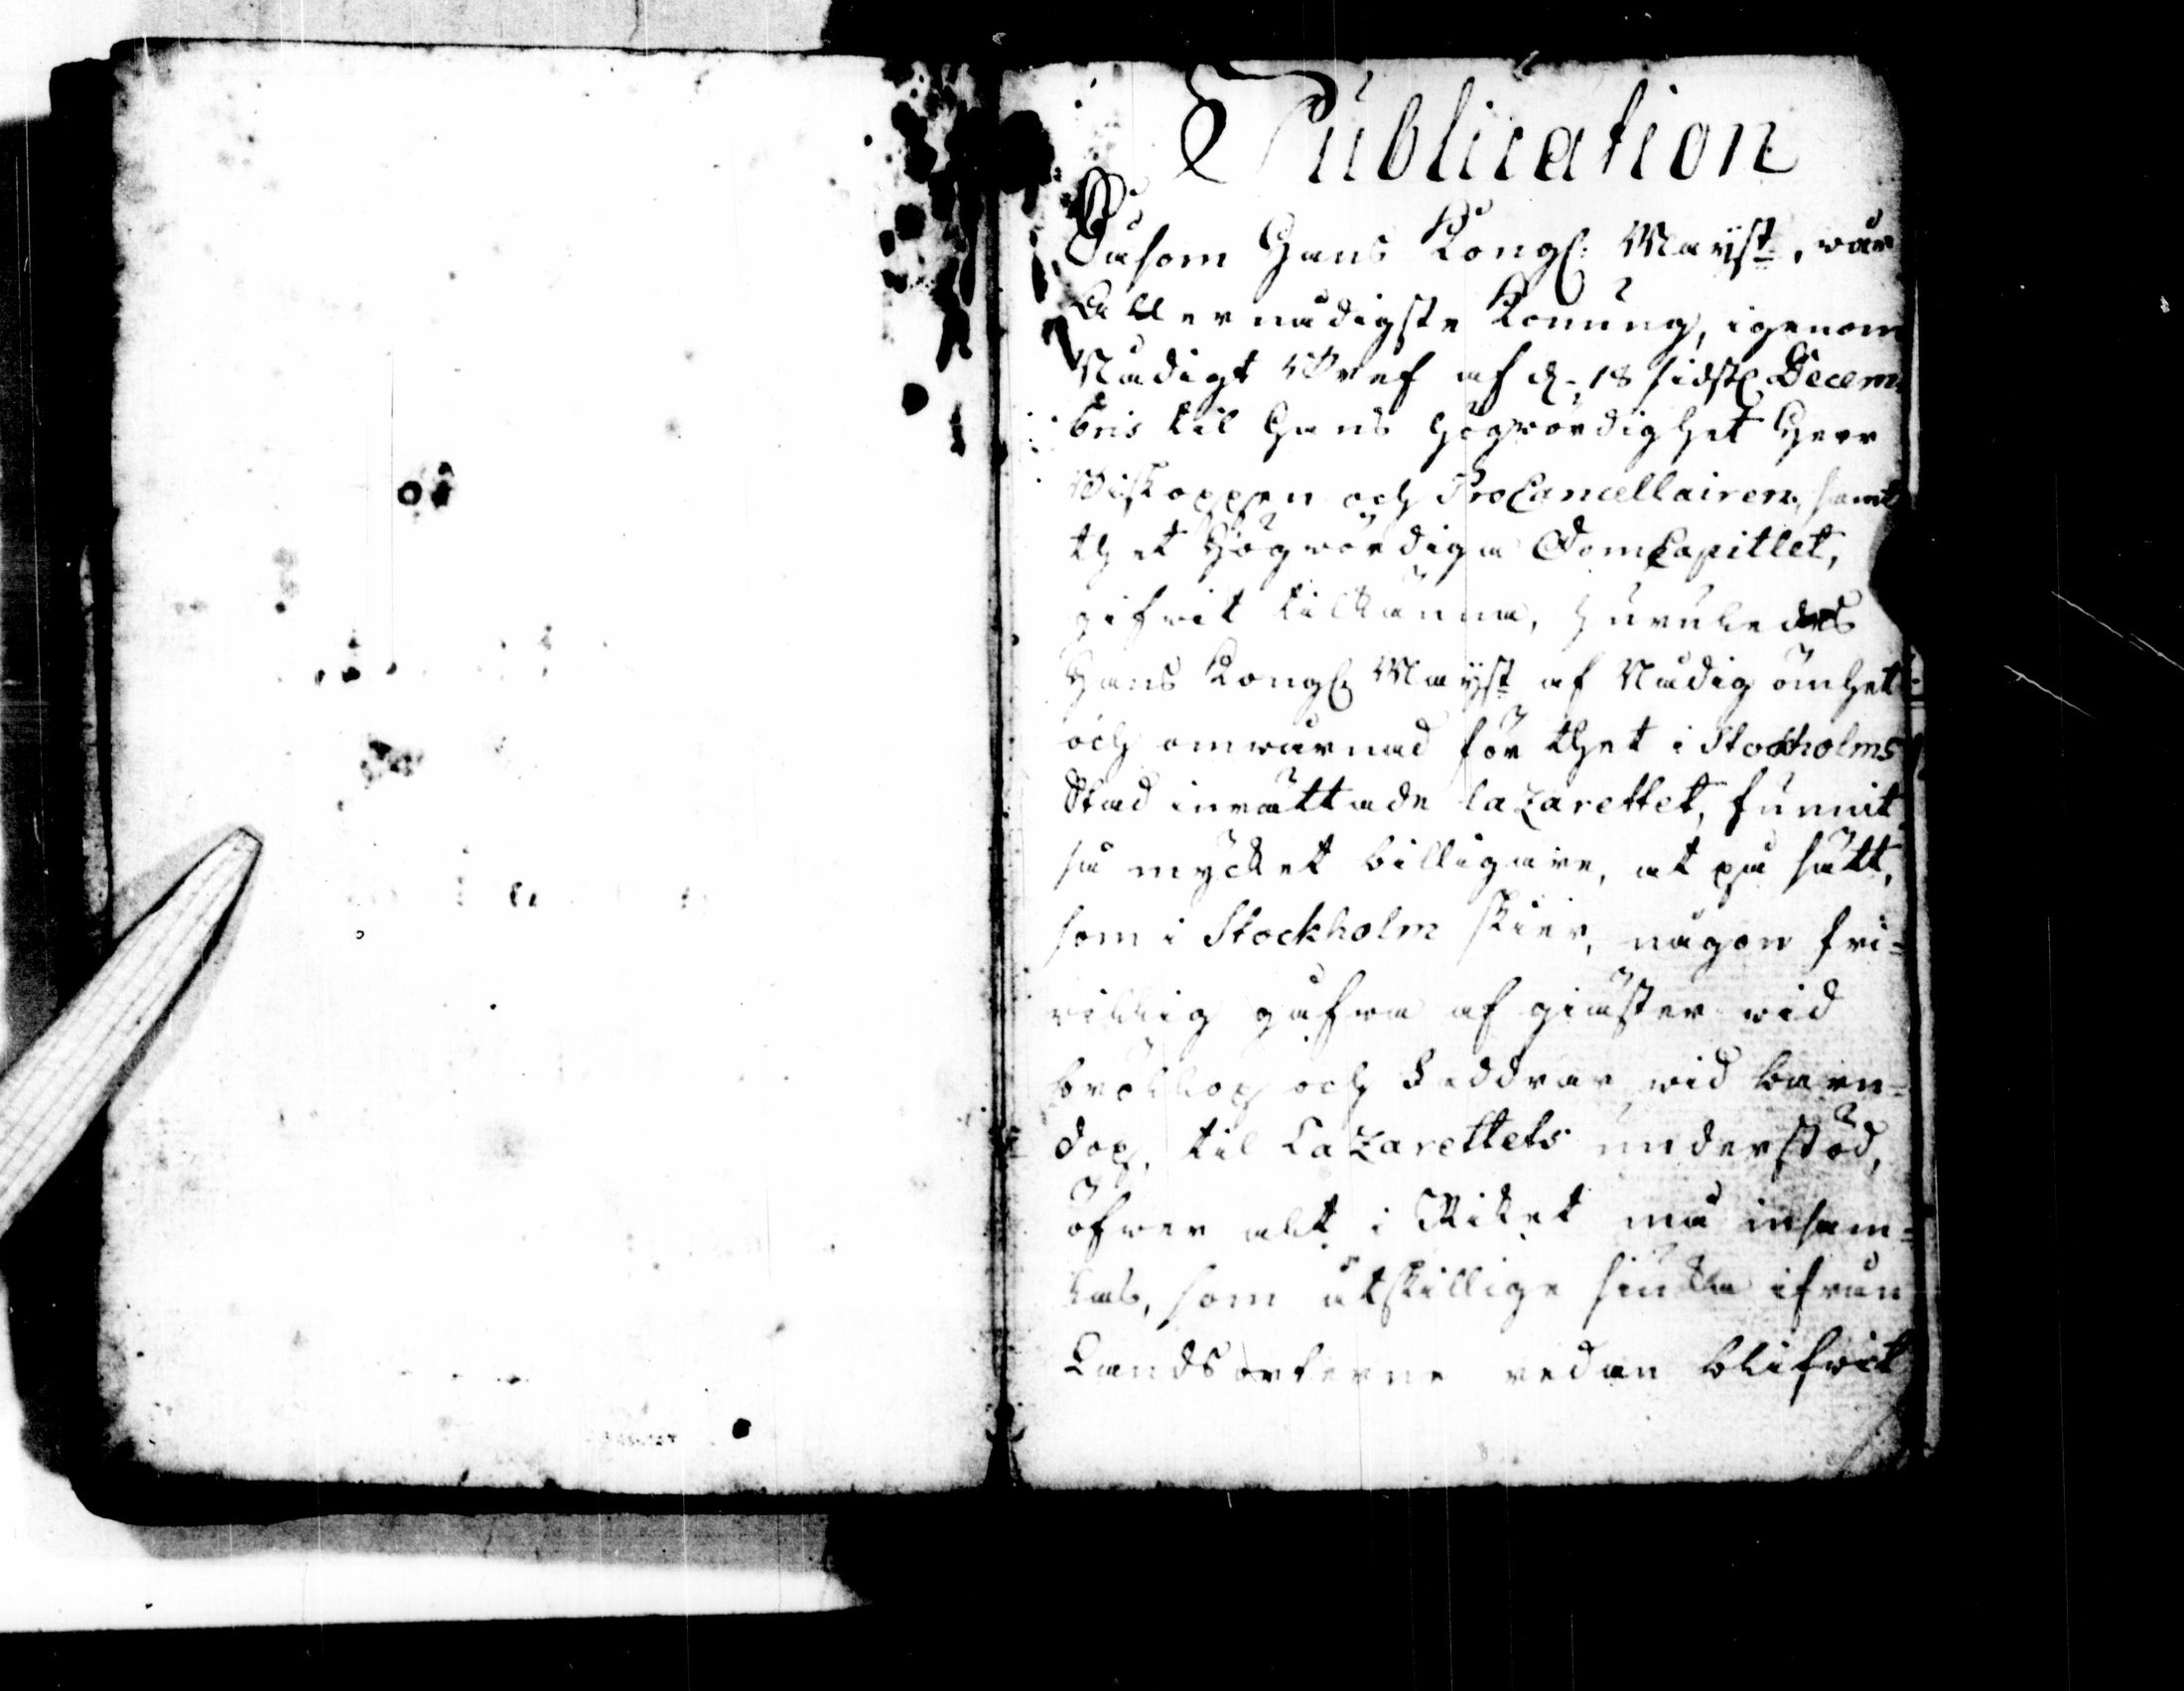 Publication
Såsom Hans Kongl: Mayst:, wår
Allernådigste Konung, igenom
Nådigt Bref af d. 18 sidstl. Decem-
bris til Hans Högwördighet Herr
Biskoppen och ProCancellairen, samt
thet Högwördiga DomCapitlet,
gifwit tilkänna, huruledes
Hans Kongl. Mayst: af Nådig ömhet
och omwårnad för thet i Stockholms
Stad inrättade lazarettet, funnit
så mycket billigare, at på sätt,
som i Stockholm skier, någon fri-
willig gåfwa af giäster wid
bröllop och Faddrar wid barn-
dop, til Lazarettets understöd,
öfwer alt i Riket må insam-
las, som åtskillige siuka ifrån
Landsorterne redan blifwit